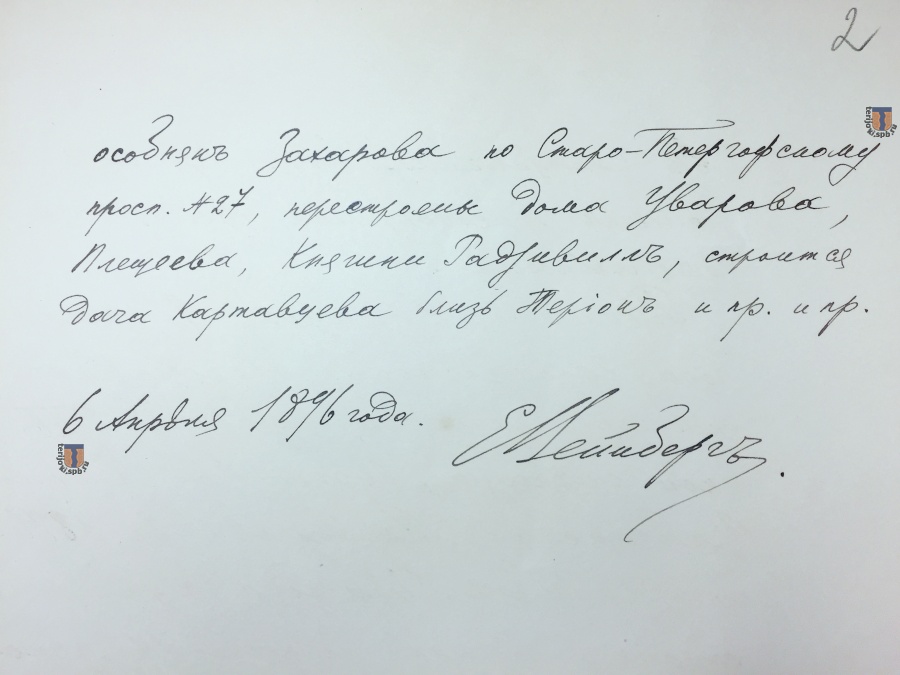 2
особнякъ Захарова по Старо-Петергофскому
просп. №27, перестроены дома Уварова,
Плещеева, Княгини Радзивиллъ, строится
дача Картавцева близь Терiокъ и пр. и пр.
6 Апрѣля 1896 года.
ЕВейнбергъ.
terijoki.spb.ru
terijoki.spb.ru